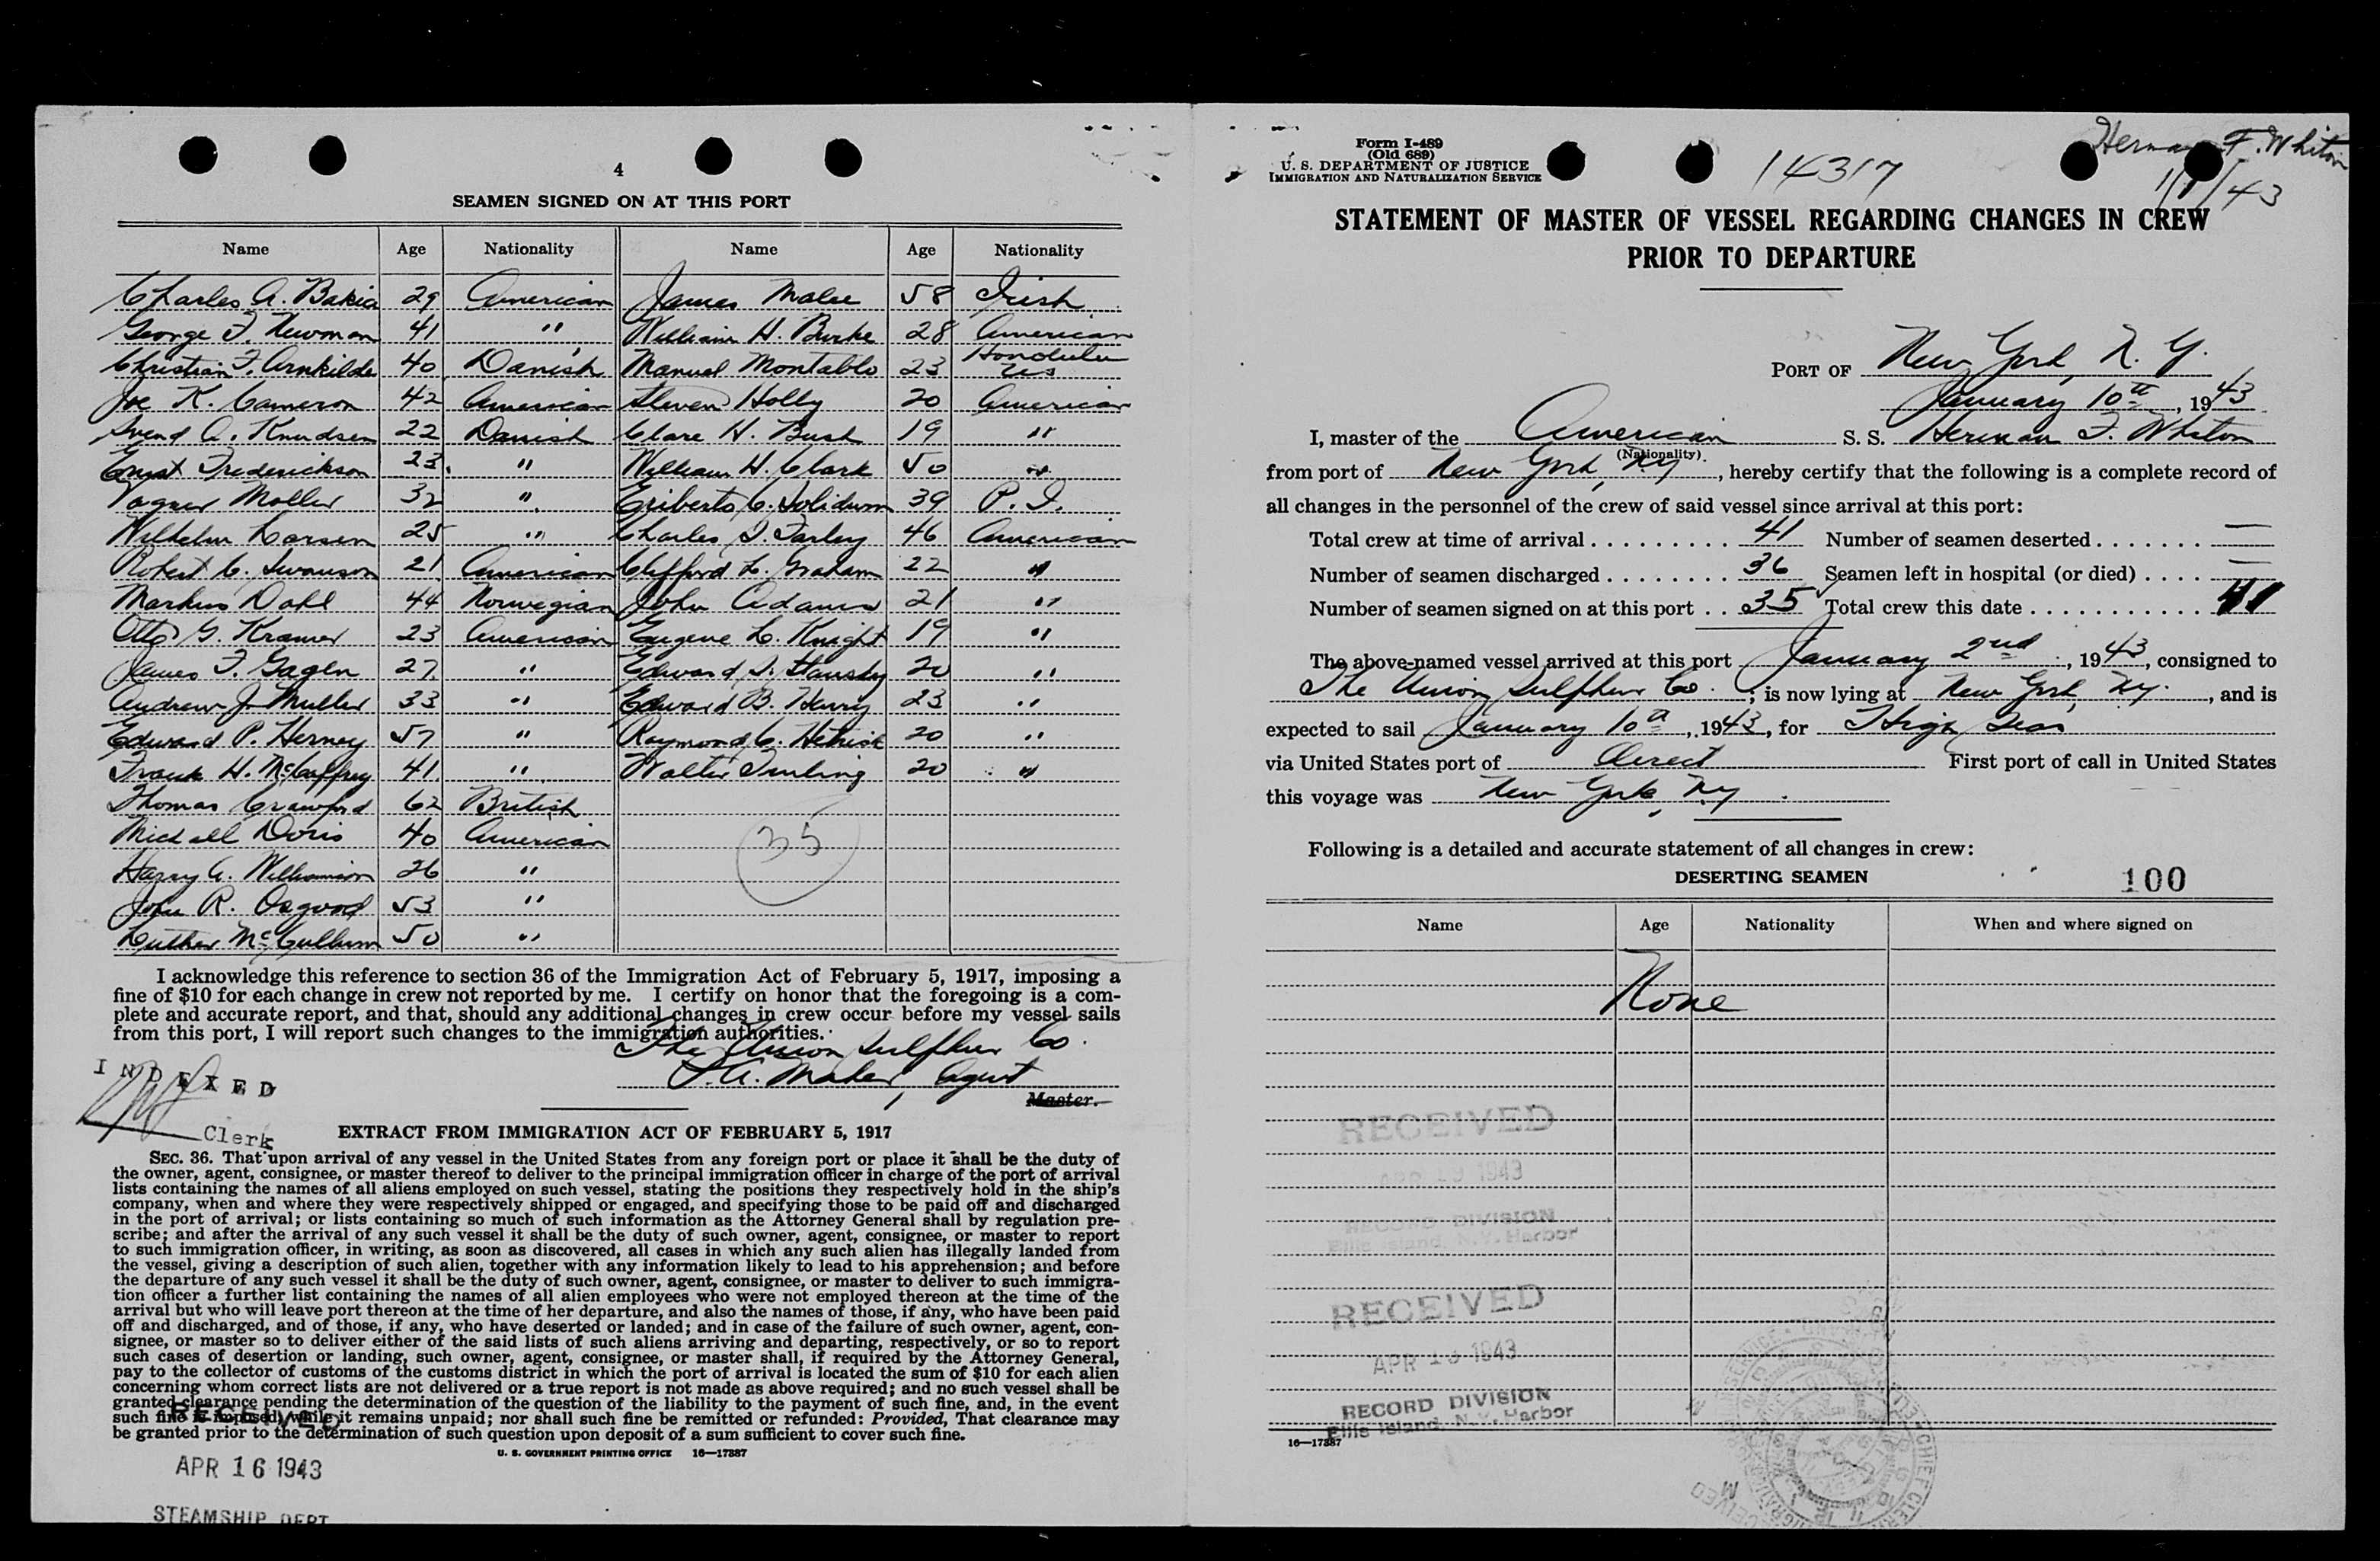 4
SEAMEN SIGNED ON AT THIS PORT
Name Age Nationality Name Age Nationality
Charles A. Bakia 29 American James Malee 58 Irish
George F. Newman 41 " William H. Burke 28 American
Christian F. Arnkilde 40 Danish Manuel Montablo 23 Honduleu us
Joe K. Cameron 42 American Steven Holly 20 American
Svend A. Knudsen 22 Danish Clare H. Bush 19 "
Ernst Frederickson 23. " William H. Clark 50 "
Vagner Moller 32 " Eriberto C. Solidum 39 P. I.
Wilhelm Larsen 25 " Charles J. Farley 46 American
Robert C. Swanson 21 American Clifford L. Graham 22 "
Markus Dahl 44 Norwegian John Adams 21 "
Otto G. Kramer 23 American Eugene L. Knight 19 "
James F. Gagen 27 " Edward J. Stansky 20 "
Andrew J. Muller 33 " Edward B. Henry 23 "
Edward P. Herney 57 " Raymond C. 20 "
Frank H. McCaffrey 41 " Walter 20 "
Thomas Crawford 62 British
Michael Doris 40 American
Harry A. Williamson 26 "
John R. Osgood 53 "
Luther McCullum 50 "
35
I acknowledge this reference to section 36 of the Immigration Act of February 5, 1917, imposing a
fine of $10 for each change in crew not reported by me. I certify on honor that the foregoing is a com-
plete and accurate report, and that, should any additional changes in crew occur before my vessel sails
from this port, I will report such changes to the immigration authorities.
The Union Sulphur Co.
J. A. Maher, Agent
Master.
INDEXED
Clerk
EXTRACT FROM IMMIGRATION ACT OF FEBRUARY 5, 1917
SEC. 36. That upon arrival of any vessel in the United States from any foreign port or place it shall be the duty of
the owner, agent, consignee, or master thereof to deliver to the principal immigration officer in charge of the port of arrival
lists containing the names of all aliens employed on such vessel, stating the positions they respectively hold in the ship's
company, when and where they were respectively shipped or engaged, and specifying those to be paid off and discharged
in the port of arrival; or lists containing so much of such information as the Attorney General shall by regulation pre-
scribe; and after the arrival of any such vessel it shall be the duty of such owner, agent, consignee, or master to report
to such immigration officer, in writing, as soon as discovered, all cases in which any such alien has illegally landed from
the vessel, giving a description of such alien, together with any information likely to lead to his apprehension; and before
the departure of any such vessel it shall be the duty of such owner, agent, consignee, or master to deliver to such immigra-
tion officer a further list containing the names of all alien employees who were not employed thereon at the time of the
arrival but who will leave port thereon at the time of her departure, and also the names of those, if any, who have been paid
off and discharged, and of those, if any, who have deserted or landed; and in case of the failure of such owner, agent, con-
signee, or master so to deliver either of the said lists of such aliens arriving and departing, respectively, or so to report
such cases of desertion or landing, such owner, agent, consignee, or master shall, if required by the Attorney General,
pay to the collector of customs of the customs district in which the port of arrival is located the sum of $10 for each alien
concerning whom correct lists are not delivered or a true report is not made as above required; and no such vessel shall be
granted clearance pending the determination of the question of the liability to the payment of such fine, and, in the event
such fine is imposed, while it remains unpaid; nor shall such fine be remitted or refunded: Provided, That clearance may
be granted prior to the determination of such question upon deposit of a sum sufficient to cover such fine.
U. S. GOVERNMENT PRINTING OFFICE 16—17387
RECEIVED
APR 16 1943
STEAMSHIP DEPT
Form I-489
(Old 689)
U. S. DEPARTMENT OF JUSTICE
IMMIGRATION AND NATURALIZATION SERVICE
14317
Herman F. Whiton
1/1/43
STATEMENT OF MASTER OF VESSEL REGARDING CHANGES IN CREW
PRIOR TO DEPARTURE
PORT OF New York, N. Y.
January 10th, 1943
I, master of the American S. S. Herman F. Whiton
(Nationality)
from port of New York, NY, hereby certify that the following is a complete record of
all changes in the personnel of the crew of said vessel since arrival at this port:
Total crew at time of arrival 41 Number of seamen deserted —
Number of seamen discharged 36 Seamen left in hospital (or died) —
Number of seamen signed on at this port 35 Total crew this date 41
The above-named vessel arrived at this port January 2nd, 1943, consigned to
The Union Sulphur Co.; is now lying at New York, NY., and is
expected to sail January 10th, 1943, for High Seas
via United States port of Direct First port of call in United States
this voyage was New York, NY.
Following is a detailed and accurate statement of all changes in crew:
DESERTING SEAMEN
100
Name Age Nationality When and where signed on
None
RECEIVED
APR 19 1943
RECORD DIVISION
Ellis Island, N.Y. Harbor
RECEIVED
APR 1943
RECORD DIVISION
Ellis Island, N.Y. Harbor
16—17387